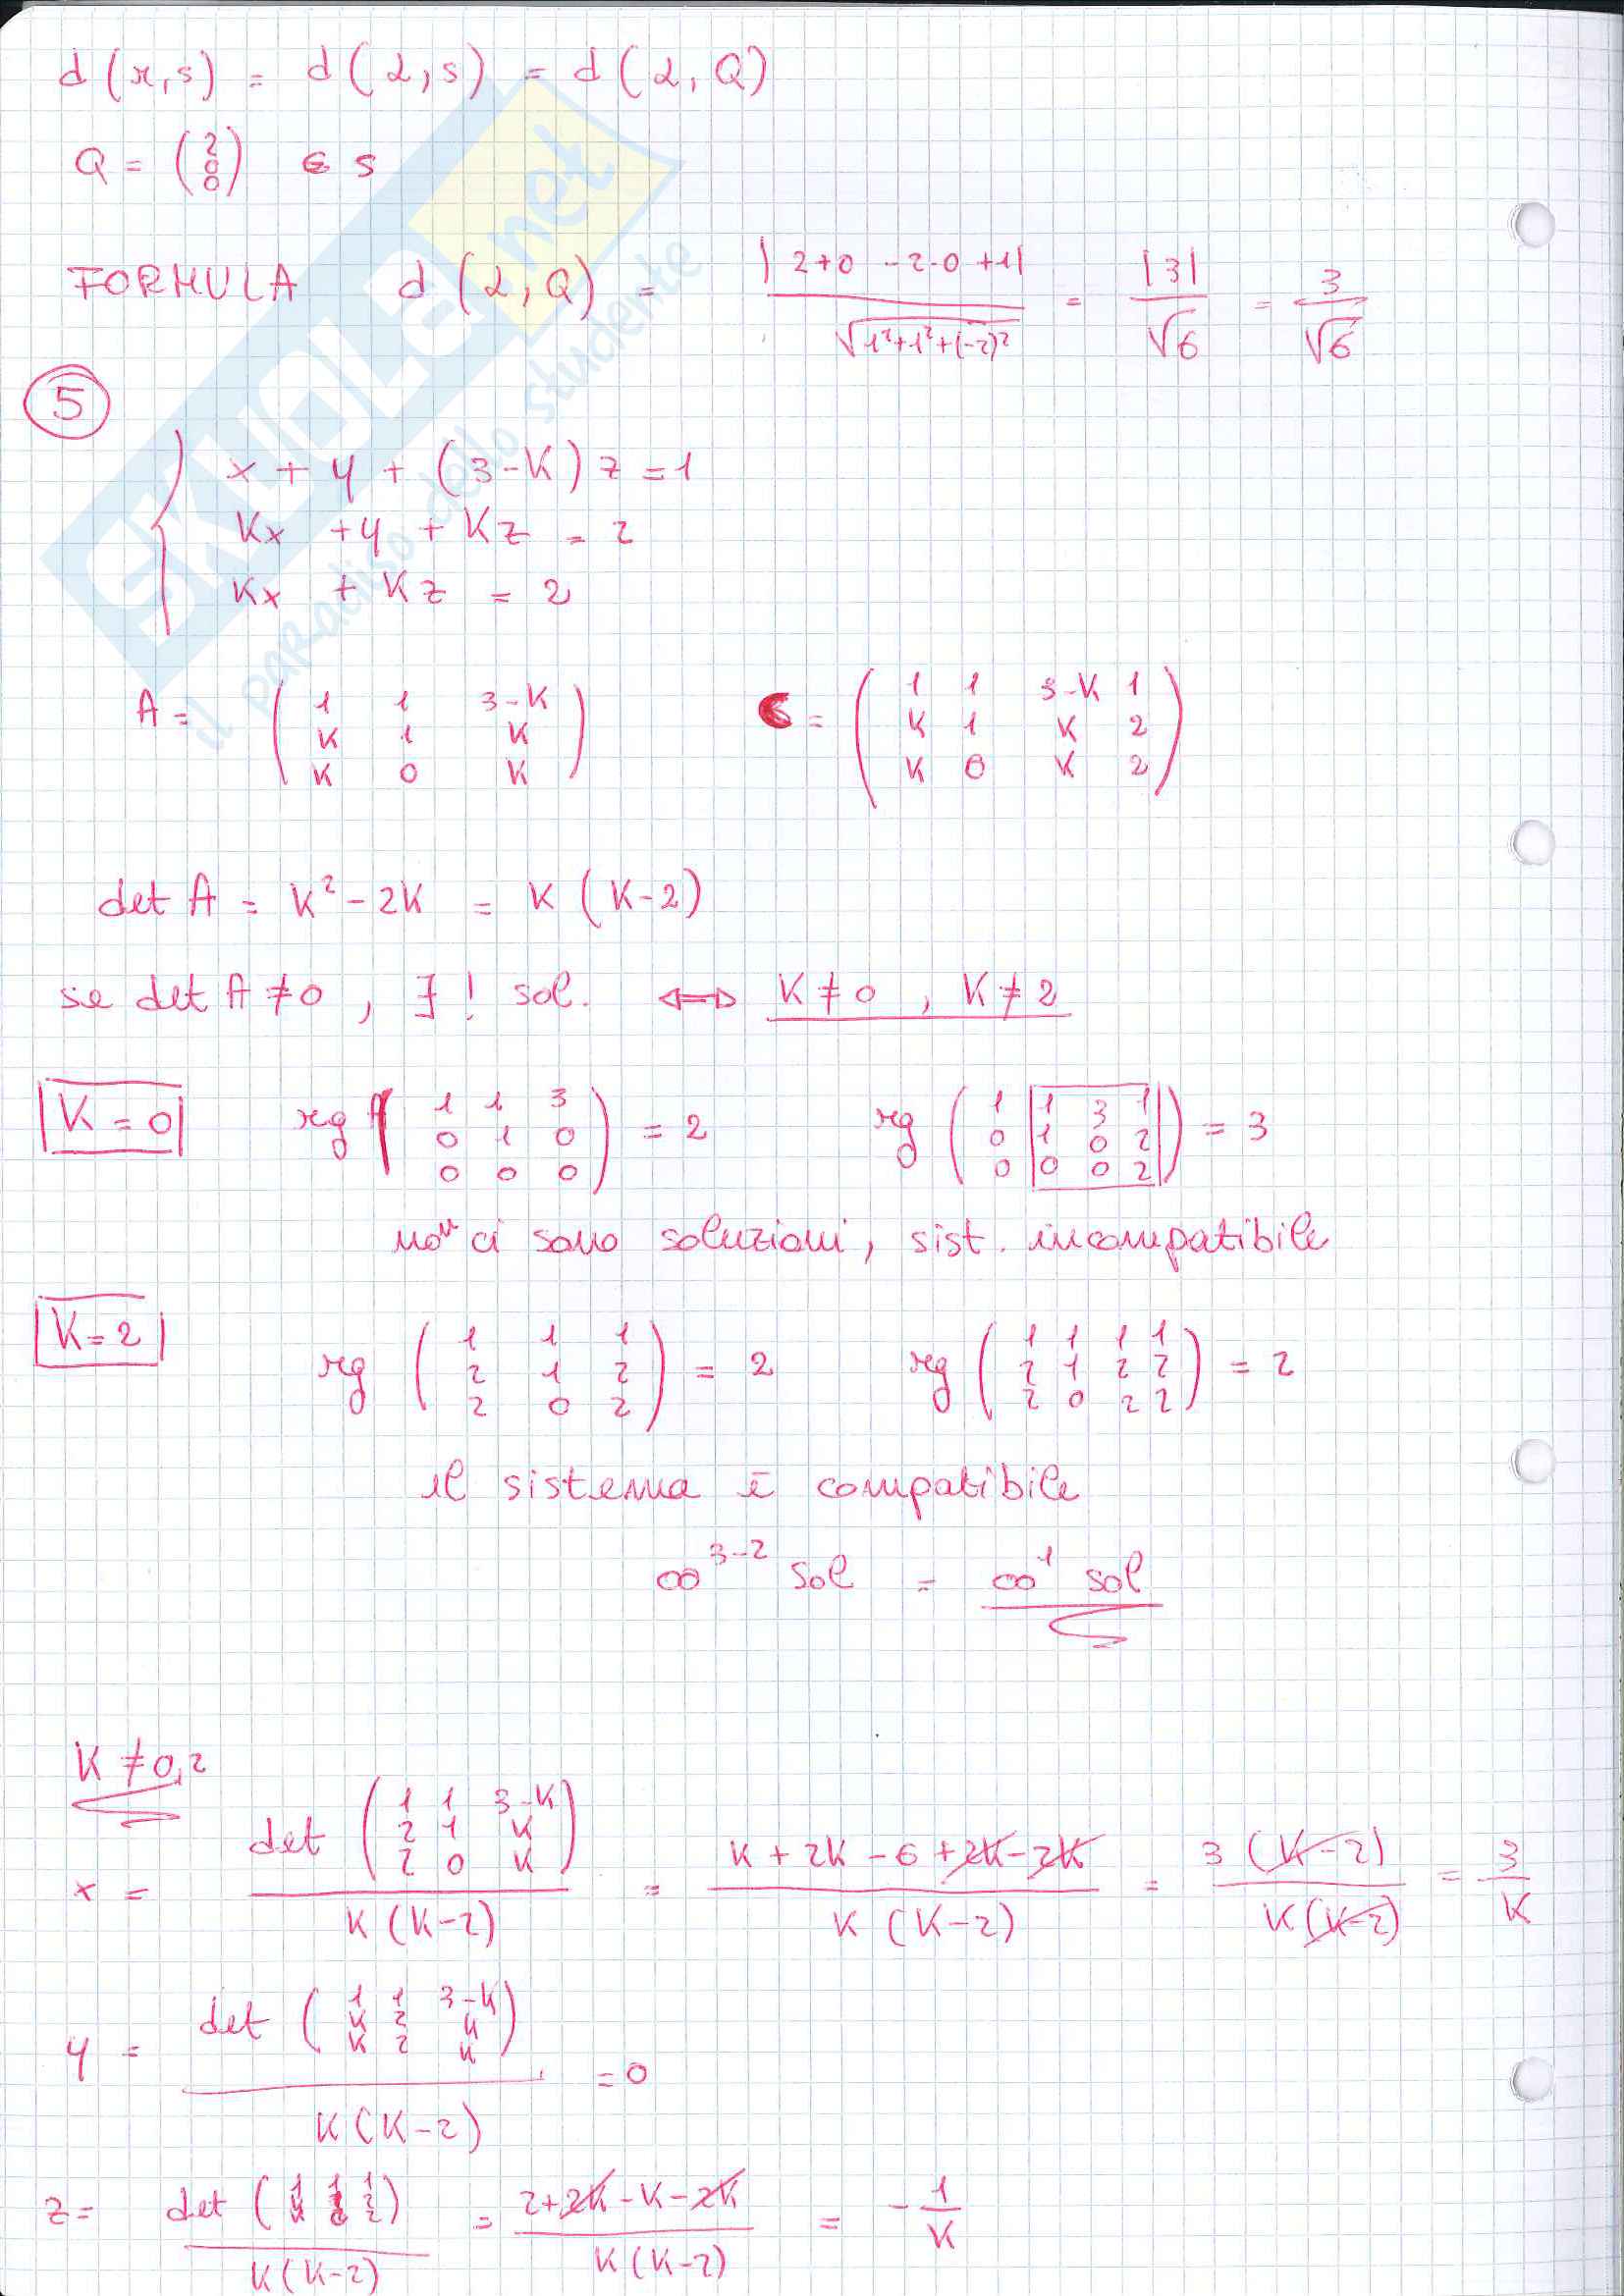 d(r,s) = d(α,s) = d(α,Q)
Q = (2 0 0) ∈ s
FORMULA d(α,Q) = |2+0-2·0+1| / √1²+1²+(-2)² = |3| / √6 = 3 / √6
5
x + y + (3-K) z = 1
Kx + y + Kz = 2
Kx + Kz = 2
A = ( 1 1 3-K
K 1 K
K 0 K )
C = ( 1 1 3-K 1
K 1 K 2
K 0 K 2 )
det A = K² - 2K = K (K-2)
se det A ≠ 0, ∃! sol. ⟺ K ≠ 0, K ≠ 2
K = 0
rg ( 1 1 3
0 1 0
0 0 0 ) = 2
rg ( 1 1 3 1
0 1 0 2
0 0 0 2 ) = 3
non ci sono soluzioni, sist. incompatibile
K = 2
rg ( 1 1 1
2 1 2
2 0 2 ) = 2
rg ( 1 1 1 1
2 1 2 2
2 0 2 2 ) = 2
il sistema è compatibile
∞³⁻² sol = ∞¹ sol
K ≠ 0,2
x = det ( 1 1 3-K
2 1 K
2 0 K ) / K(K-2) = K + 2K - 6 + 2K - 2K / K(K-2) = 3(K-2) / K(K-2) = 3 / K
y = det ( 1 1 3-K
K 2 K
K 2 K ) / K(K-2) = 0
z = det ( 1 1 1
K 2 ) / K(K-2) = 2+2K-K-2K / K(K-2) = - 1 / K
SKUOLA.net
il paradiso dello studente